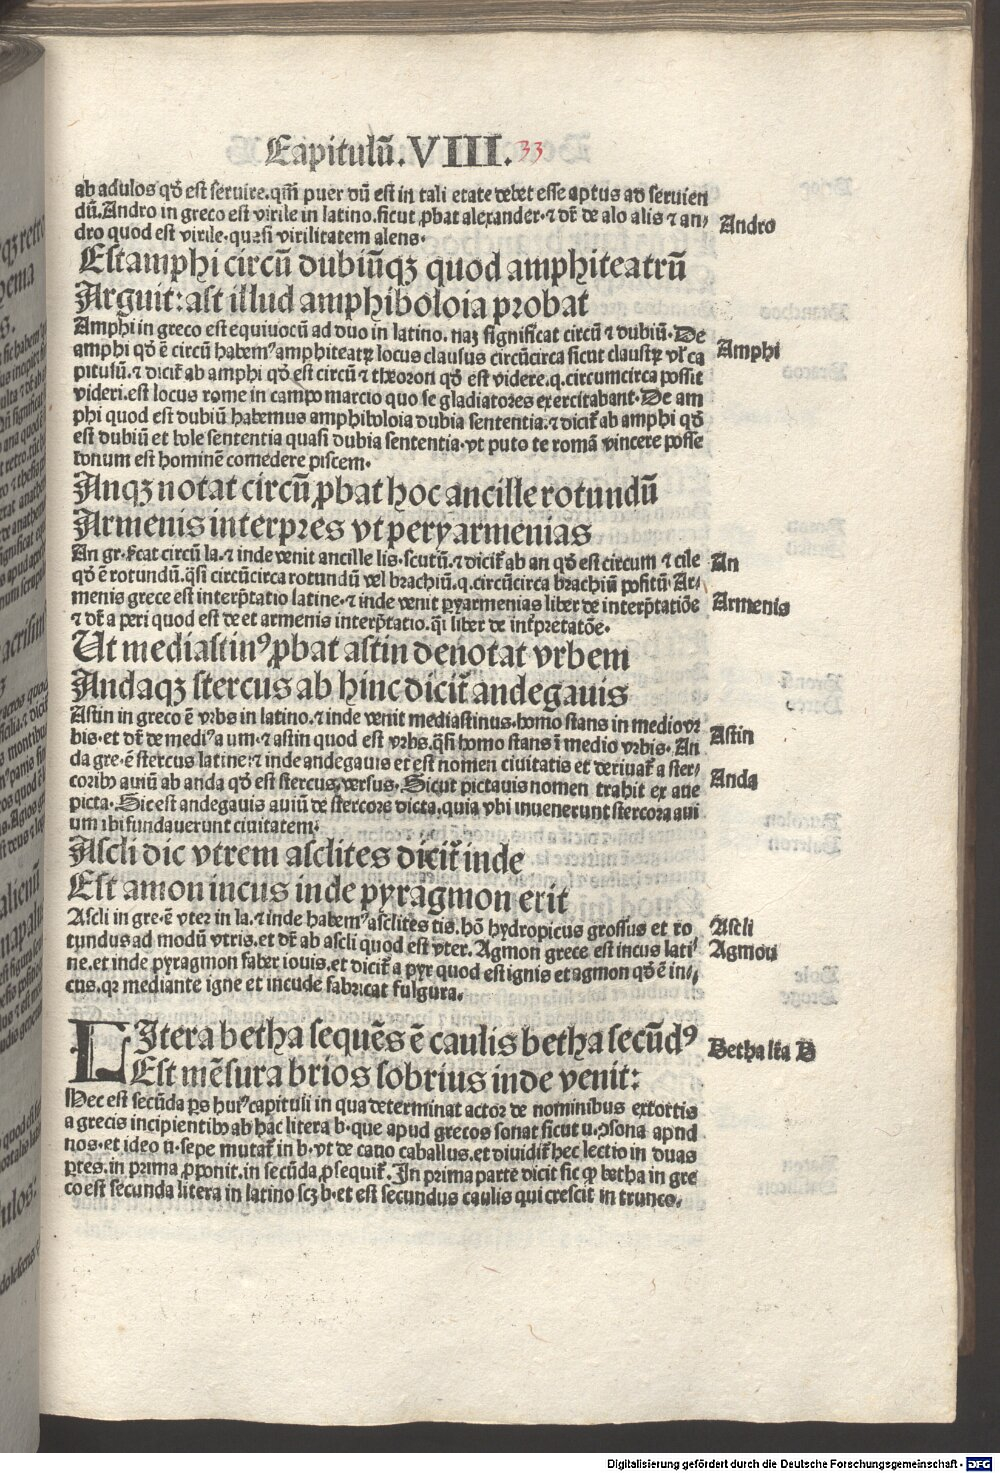 Capitulū. VIII. 33
ab adulos qđ est seruire. qm̄ puer dū est in tali etate debet esse aptus ad seruien
dū. Andro in greco est virile in latino. sicut ꝓbat alexander · ⁊ dr̄ de alo alis ⁊ an/
dro quod est virile · quasi virilitatem alens ·
Andro
Est amphi circū dubiūqꝫ quod amphiteatrū
Arguit: ast illud amphiboloia probat
Amphi in greco est equiuocū ad duo in latino. naꝫ significat circū ⁊ dubiū · De
amphi qđ ē circū habemꝰ amphiteatꝝ locus clausus circūcirca sicut claustꝝ vl̓ ca
Amphi
pitulū. ⁊ dicit̄ ab amphi qđ est circū ⁊ theoron qđ est videre. q. circumcirca possit
videri. est locus rome in campo marcio quo se gladiatores exercitabant · De am
phi quod est dubiū habemus amphiboloia dubia sententia. ⁊ dicit̄ ab amphi qđ
est dubiū et bole sententia quasi dubia sententia · vt puto te romā vincere posse
bonum est hominē comedere piscem ·
Anqꝫ notat circū ꝓbat hoc ancille rotundū
Armenis interpres vt peryarmenias
An gr · ſcat circū la. ⁊ inde venit ancille lis · scutū. ⁊ dicit̄ ab an qđ est circum ⁊ cile
An
qđ ē rotundū. q̄si circūcirca rotundū vel brachiū. q. circūcirca brachiū positū · Ar/
menis grece est interp̄tatio latine · ⁊ inde venit peryarmenias liber de interp̄tatiōe
Armenis
⁊ dr̄ a peri quod est de et armenis interp̄tatio. q̄i liber de int̄pretatōe ·
Ut mediastinꝰ ꝓbat astin denotat vrbem
Andaqꝫ stercus ab hinc dicit̄ andegauis
Astin in greco ē vrbs in latino. ⁊ inde venit mediastinus · homo stans in medio vr
bis · et dr̄ de mediꝰ a um · ⁊ astin quod est vrbs. q̄si homo stans ī medio vrbis · An
Astin
da gre · ē stercus latine: ⁊ inde andegauis et est nomen ciuitatis et deriuat̄ a ster/
coribꝰ auiū ab anda qđ est stercus, versus · Sicut pictauis nomen trahit ex aue
Anda
picta · Sic est andegauis auiū de stercore dicta. quia vbi inuenerunt stercora aui
um ibi fundauerunt ciuitatem ·
Ascli dic vtrem asclites dicit̄ inde
Est amon incus inde pyragmon erit
Ascli in gre · ē vter in la. ⁊ inde habemꝰ asclites tis. hō hydropicus grossus et ro
Ascli
tundus ad modū vtris. et dr̄ ab ascli quod est vter. Agmon grece est incus lati/
Agmon
ne. et inde pyragmon faber iouis. et dicit̄ a pyr quod est ignis et agmon qđ ē in/
cus. qꝛ mediante igne et incude fabricat fulgura.
LItera betha sequēs ē caulis betha secūdꝰ
Betha lr̄a B
Est mēsura brios sobrius inde venit:
Hec est secūda ꝑs huiꝰ capituli in qua determinat actor de nominibus extortis
a grecis incipientibꝰ ab hac litera b · que apud grecos sonat sicut u. ↄsona apud
nos · et ideo u · sepe mutat̄ in b · vt de cauo caballus. et diuidit̄ hec lectio in duas
ꝑtes. in prima ꝓponit. in secūda ꝓsequit̄. In prima parte dicit sic ꝙ betha in gre
co est secunda litera in latino scꝫ b · et est secundus caulis qui crescit in trunco.
Digitalisierung gefördert durch die Deutsche Forschungsgemeinschaft - DFG